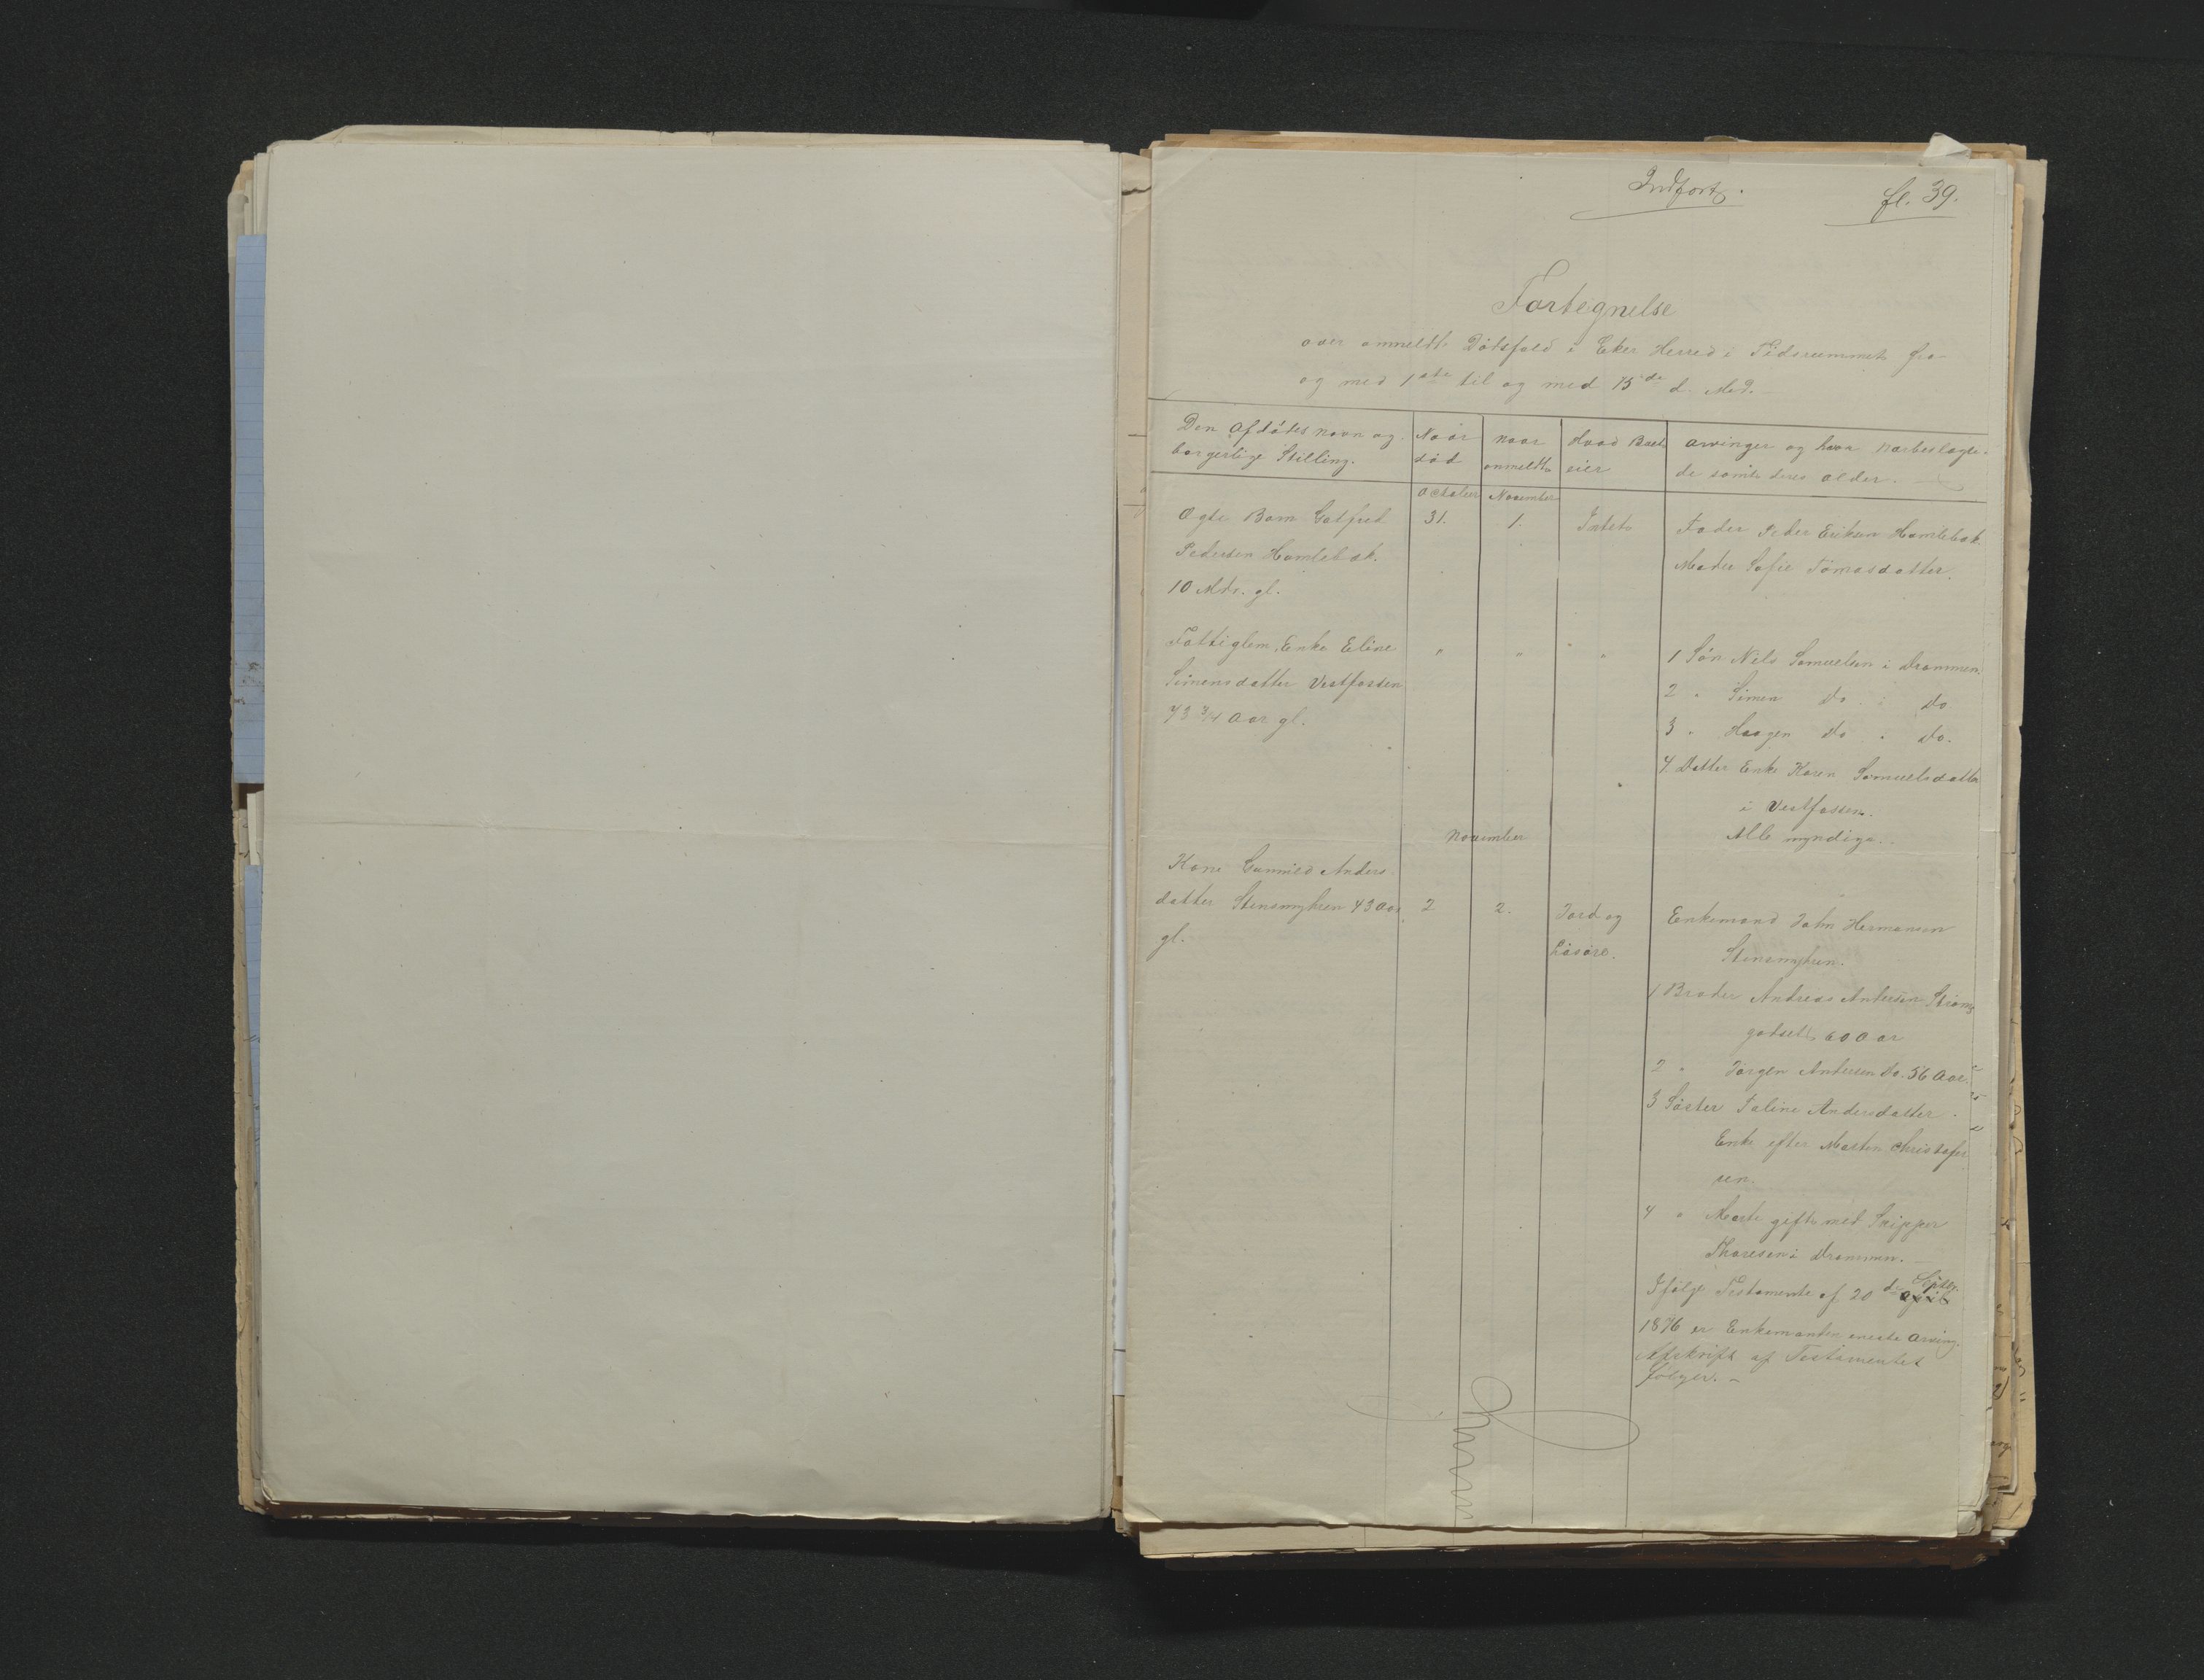 Indført.
fl. 39.
Fortegnelse
over anmeldte Dødsfald i Eker Herred i Tidsrummet fra
og med 1ste til og med 15de d. Md.
Den afdødes navn og borgerlige Stilling.
Naar død
naar anmeldt
Hvad Boet eier
arvinger og hvor narbeslægtede samt deres alder.
October
November
Ægte Barn Gotfred
31.
1.
Intet
Fader Peder Eriksen Hamlebæk
Pedersen Hamlebæk.
Moder Sofie Tomasdatter.
10 Mdr. gl.
Fattiglem, Enke Eline
"
"
"
"
1 Søn Nils Samuelsen i Drammen.
Simensdatter Vestfossen
2 " Simen do i do
73 3/4 Aar gl.
3 " Haagen do " do.
4. Datter Enke Karen Samuelsdatter
i Vestfossen.
Alle myndige.
November
Kone Gunnild Anders-
datter Stensmyhren 43 Aar
2
2.
Jord og
Enkemand John Hermansen
gl.
Løsøre.
Stensmyhren.
1 Broder Andreas Andersen Strøms
godset, 60 Aar
2 " Jørgen Andersen do. 56 Aar.
3 Søster Taline Andersdatter.
Enke efter Morten Christofer
sen.
4 " Marte gift med Skipper
Thoresen i Drammen.
Ifølge Testamente af 20de Septbr. april
1876 er Enkemanden eneste arving.
Afskrift af Testamentet
følger. -